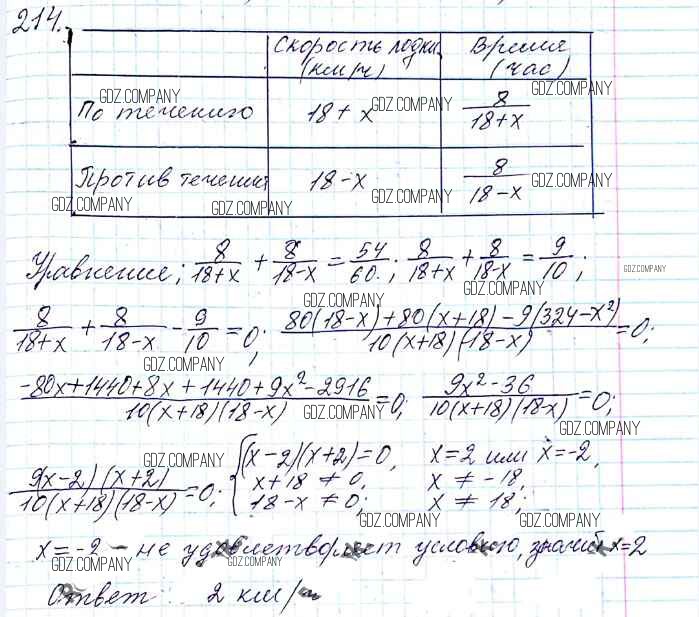 214.
Скорость лодки (км/ч) Время (час)
GDZ.COMPANY
По течению 18 + x GDZ.COMPANY 8/(18+x) GDZ.COMPANY
Против течения 18 - x 8/(18-x) GDZ.COMPANY
GDZ.COMPANY GDZ.COMPANY GDZ.COMPANY
Уравнение; 8/(18+x) + 8/(18-x) = 54/60; 8/(18+x) + 8/(18-x) = 9/10; GDZ.COMPANY
GDZ.COMPANY GDZ.COMPANY
8/(18+x) + 8/(18-x) - 9/10 = 0; (80(18-x)+80(x+18)-9(324-x²))/(10(x+18)(18-x)) = 0;
GDZ.COMPANY
(-80x+1440+8x+1440+9x²-2916)/(10(x+18)(18-x)) = 0; (9x²-36)/(10(x+18)(18-x)) = 0;
GDZ.COMPANY GDZ.COMPANY
9(x-2)(x+2)/(10(x+18)(18-x)) = 0; { (x-2)(x+2)=0, x=2 или x=-2,
GDZ.COMPANY
x+18 ≠ 0, x ≠ -18,
18-x ≠ 0; x ≠ 18;
GDZ.COMPANY GDZ.COMPANY
x = -2 - не удовлетворяет условию, значит x=2
GDZ.COMPANY GDZ.COMPANY
Ответ 2 км/ч